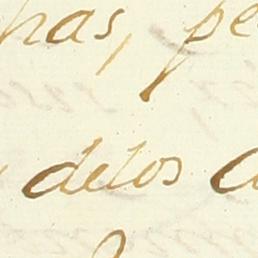 has, pe
delos